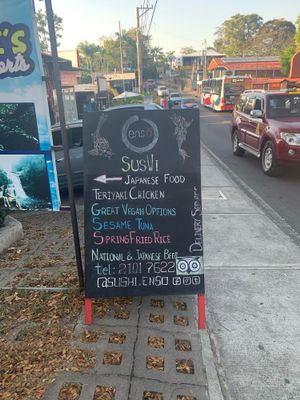 ensō
SUSHI
JAPANESE FOOD
TERIYAKI CHICKEN
GREAT VEGAN OPTIONS
SESAME TUNA
SPRING FRIED RICE
NATIONAL & JAPANESE BEER
tel: 2101 7622
@SUSHI.ENSO
DELIVERY SERVICE